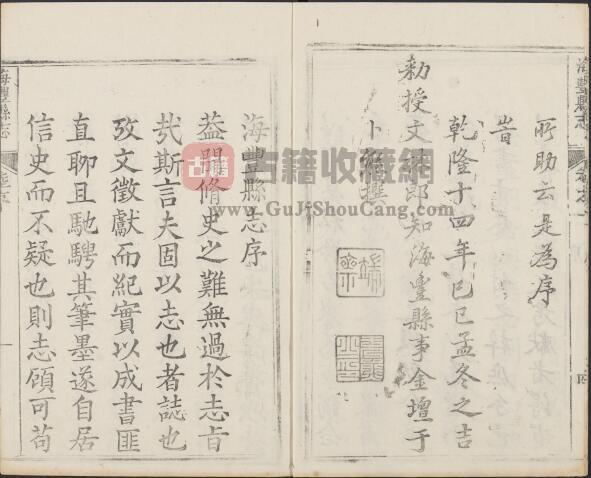 所助云是為序
旹
乾隆十四年己巳孟冬之吉
勑授文林郎知海豐縣事金壇于
卜熊撰
海豐縣志
海豐縣志序
葢聞脩史之難無過於志旨
㢤斯言夫固以志也者誌也
攷文徵獻而紀實以成書匪
直聊且馳騁其筆墨遂自居
信史而不疑也則志顧可苟
海豐縣志
古籍
古籍收藏网
www.GuJiShouCang.com